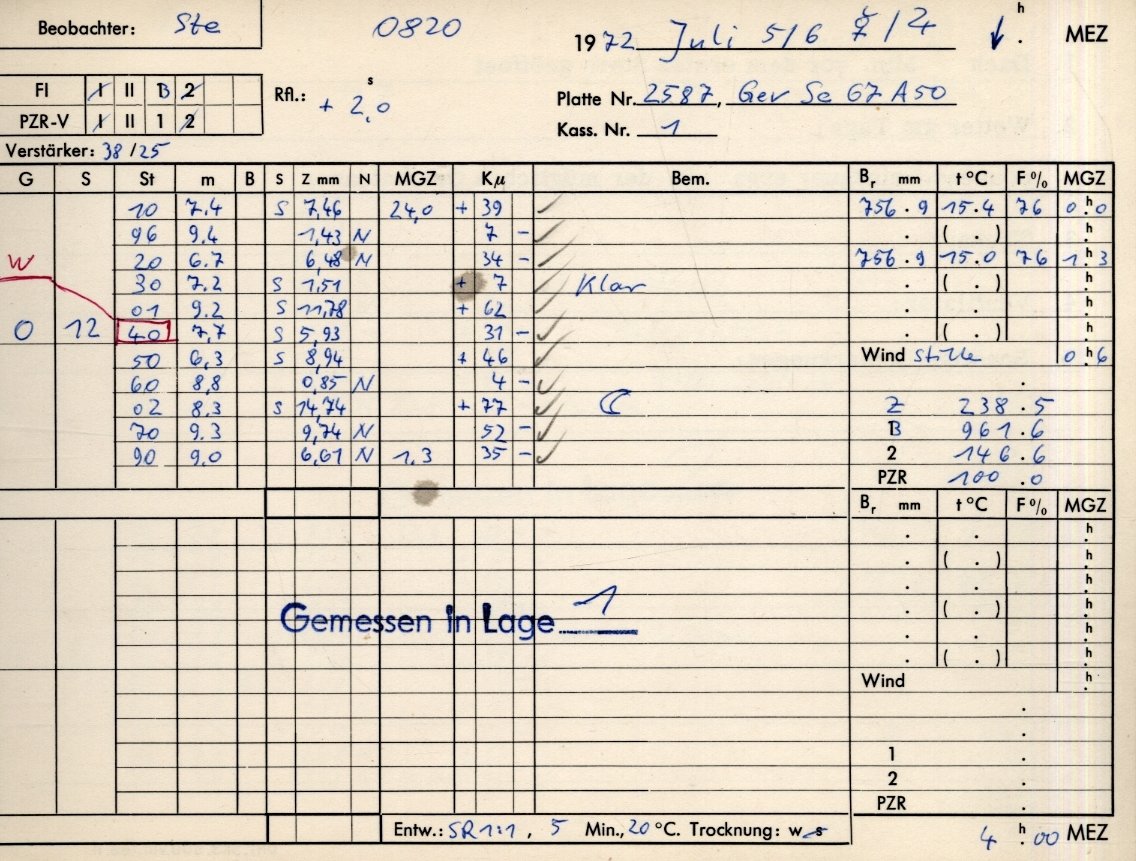 Beobachter: Ste 0820 1972 Juli 5/6 ↓ h . MEZ
FI I II B 2 Rfl.: + 2,0 s Platte Nr. 2587, Gev Sc 67 A50
PZR-V I II 1 2 Kass. Nr. 1
Verstärker: 38/25
G S St m B S Z mm N MGZ Kμ Bem. Br mm t °C F % MGZ
10 7.4 S 7,46 24,0 + 39 ✓ 756.9 15.4 76 0h.0
96 9.4 1,43 N 7 − ✓ . ( . ) h
W 20 6.7 6,48 N 34 − ✓ 756.9 15.0 76 1h.3
30 7.2 S 1,51 + 7 ✓ Klar . ( . ) h
01 9.2 S 11,78 + 62 ✓ . h
0 12 40 7,7 S 5,93 31 − ✓ . ( . ) h
50 6,3 S 8,94 + 46 ✓ Wind stille 0h.6
60 8,8 0,85 N 4 − ✓ .
02 8,3 S 14,74 + 77 ✓ ☾ Z 238.5
70 9.3 9,74 N 52 − ✓ B 961.6
90 9,0 6,61 N 1.3 35 − ✓ 2 146.6
PZR 100.0
Br mm t °C F % MGZ
. . h
. ( . ) h
. . h
Gemessen in Lage 1 . ( . ) h
. . h
. ( . ) h
Wind h
.
.
1 .
2 .
PZR .
Entw.: SR 1:1, 5 Min., 20 °C. Trocknung: w s 4 h.00 MEZ